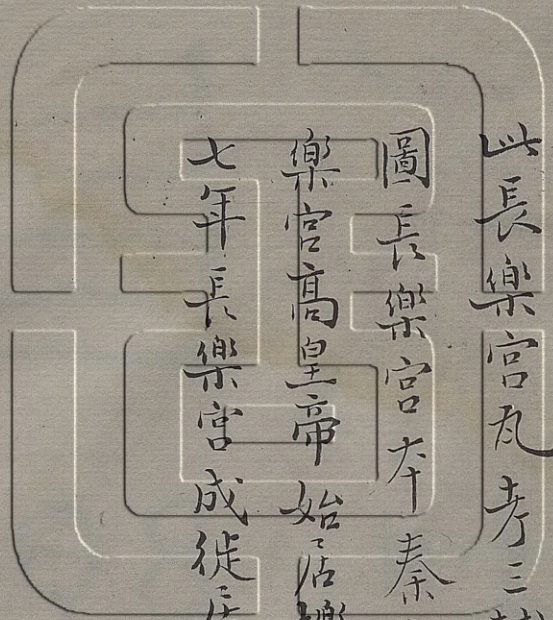 此長樂宮瓦考三
圖長樂宮本秦
樂宮高皇帝始居
七年長樂宮成徙居